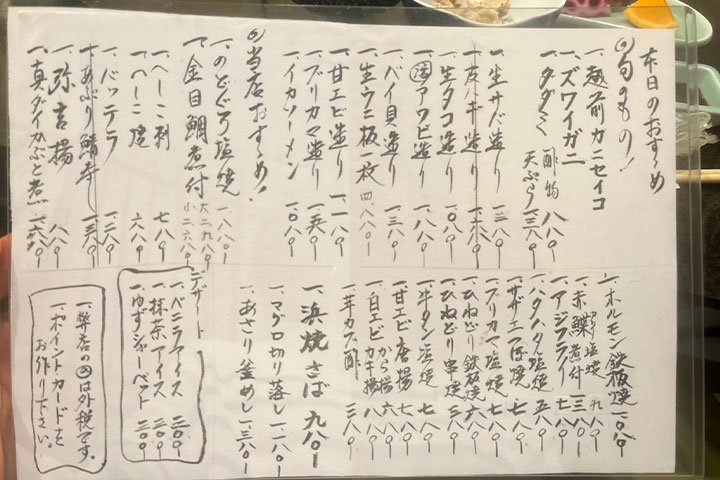 本日のおすゝめ
◎旬のもの！
一、越前カニセイコ
一、ズワイガニ
一、タダミ 酢物 八八〇-
天ぷら 一、三八〇-
一、生サバ造り 一、三八〇-
一、生タコ造り 一、〇八〇-
一、活アワビ造り 一、八八〇-
一、バイ貝造り 一、三八〇-
一、生ウニ板一枚 四、八八〇-
一、甘エビ造り 一、一八〇-
一、ブリカマ造り
一、イカソーメン 一、〇八〇-
◎当店おすゝめ！
一、のどぐろ塩焼 一、八八〇-
一、金目鯛煮付 大二、九八〇- 小二、六八〇-
一、へしこ刺 七八〇-
一、へしこ焼 六八〇-
一、バッテラ 一、二八〇-
一、あぶり鯖寿し 一、三八〇-
一、弥吉揚 八八〇-
一、真ダイかぶと煮
一、ホルモン鉄板焼 一、〇八〇-
塩焼 九八〇-
一、赤鰈煮付 一、三八〇-
一、アジフライ 七八〇-
一、ハタハタ塩焼 五八〇-
一、サザエつぼ焼 七八〇-
一、ブリカマ塩焼 七八〇-
一、ひねどり鉄板焼 六八〇-
一、ひねどり串焼 三八〇-
一、牛タン塩焼 七八〇-
一、甘エビ唐揚 七八〇-
一、白エビ から揚 六八〇-
カキ揚 八八〇-
一、芋カブ酢 三八〇-
一、浜焼さば 九八〇-
一、マグロ切り落し 一、二八〇-
一、あさり釜めし 一、三八〇-
デザート
一、バニラアイス 三〇〇-
一、抹茶アイス 三〇〇-
一、ゆずシャーベット 三〇〇-
一、弊店の㋱は外税です。
一、ポイントカードを
お作り下さい。